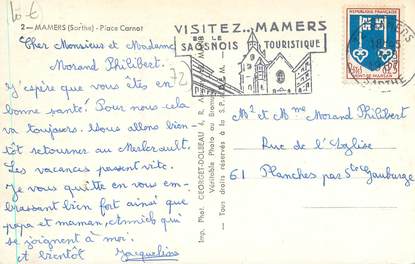 10 €
2 - MAMERS (Sarthe) - Place Carnot
Cher Monsieur et Madame
Morand Philibert.
J'espère que vous êtes en
bonne santé. Pour nous cela
va toujours. Nous allons bien-
tôt retourner au Merlerault.
Les vacances passent vite.
Je vous quitte en vous em-
brassant bien fort ainsi que
papa et maman, et
se joignent à moi.
et bientôt Jacqueline
72
Imp. Phot. GEORGET-DOLBEAU
Véritable Photo au Bromure
Tous droits réservés à la S.P.
VISITEZ... MAMERS
LE
SAOSNOIS TOURISTIQUE
MAMERS
18
SARTHE
REPUBLIQUE FRANÇAISE
MONT-DE-MARSAN
Mr et Mme Morand Philibert
Rue de l'Eglise
61 Planches par Ste Gauburge